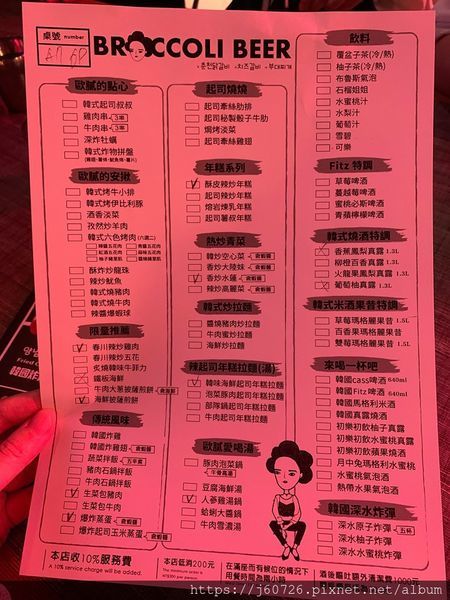 桌號 number
A7 6P
BROCCOLI BEER
• 춘천닭갈비 • 치즈갈비 • 부대찌개
歐膩的點心
韓式起司叔叔
雞肉串 3串
牛肉串 3串
深炸牡蠣
韓式炸物拼盤
歐膩的安揪
韓式烤牛小排
韓式烤伊比利豚
酒香淡菜
孜然炒羊肉
韓式六色烤肉(六選二)
酥炸炒龍珠
辣炒魷魚
韓式燒豬肉
韓式燒牛肉
辣醬爆蝦球
限量推薦
春川辣炒雞肉
春川辣炒五花
炙燒韓味牛菲力
鐵板海鮮
牛肉大蔥披薩煎餅
海鮮披薩煎餅
傳統風味
韓國炸雞
韓國炸雞翅
蔬菜拌飯
豬肉石鍋拌飯
牛肉石鍋拌飯
生菜包豬肉
生菜包牛肉
爆炸蒸蛋
爆炸起司玉米蒸蛋
起司燒燒
起司牽絲肋排
起司秘製骰子牛肋
焗烤淡菜
起司牽絲雞翅
年糕系列
酥皮辣炒年糕
起司辣炒年糕
熔岩煉乳年糕
起司薯叔年糕
熱炒青菜
韓炒空心菜
香炒大陸妹
香炒水蓮
辣炒高麗菜
韓式炒拉麵
醬燒豬肉炒拉麵
牛肉蜜炒拉麵
海鮮炒拉麵
辣起司年糕拉麵(湯)
韓味海鮮起司年糕拉麵
泡菜豚肉起司年糕拉麵
部隊鍋起司年糕拉麵
牛肉起司年糕拉麵
歐膩愛喝湯
豚肉泡菜鍋
牛骨高湯
豆腐海鮮湯
人參雞湯鍋
蛤蜊大醬鍋
牛肉雪濃湯
飲料
覆盆子茶(冷/熱)
柚子茶(冷/熱)
布魯斯氣泡
石榴姐姐
水蜜桃汁
水梨汁
葡萄汁
雪碧
可樂
Fitz 特調
草莓啤酒
蔓越莓啤酒
蜜桃必斯啤酒
青蘋檸檬啤酒
韓式燒酒特調
香蕉鳳梨真露 1.3L
柳橙百香真露 1.3L
火龍果鳳梨真露 1.3L
葡萄柚真露 1.3L
韓式米酒果昔特調
草莓瑪格麗果昔 1.5L
百香果瑪格麗果昔 1.5L
雙莓瑪格麗果昔 1.5L
來喝一杯吧
韓國cass啤酒 640ml
韓國Fitz 啤酒 640ml
韓國馬格利米酒
韓國真露燒酒
初樂初飲柚子真露
初樂初飲水蜜桃真露
初樂初飲蘋果燒酒
月中兔瑪格利水蜜桃
水蜜桃氣泡酒
熱帶水果氣泡酒
韓國深水炸彈
深水原子炸彈 五杯
深水柚子炸彈
深水水蜜桃炸彈
本店收10%服務費
A 10% service charge will be added.
本店低消200元
在滿座而有候位的情況下
用餐時間為兩小時
酒後嘔吐額外清潔費1000元
https://j60726.pixnet.net/album